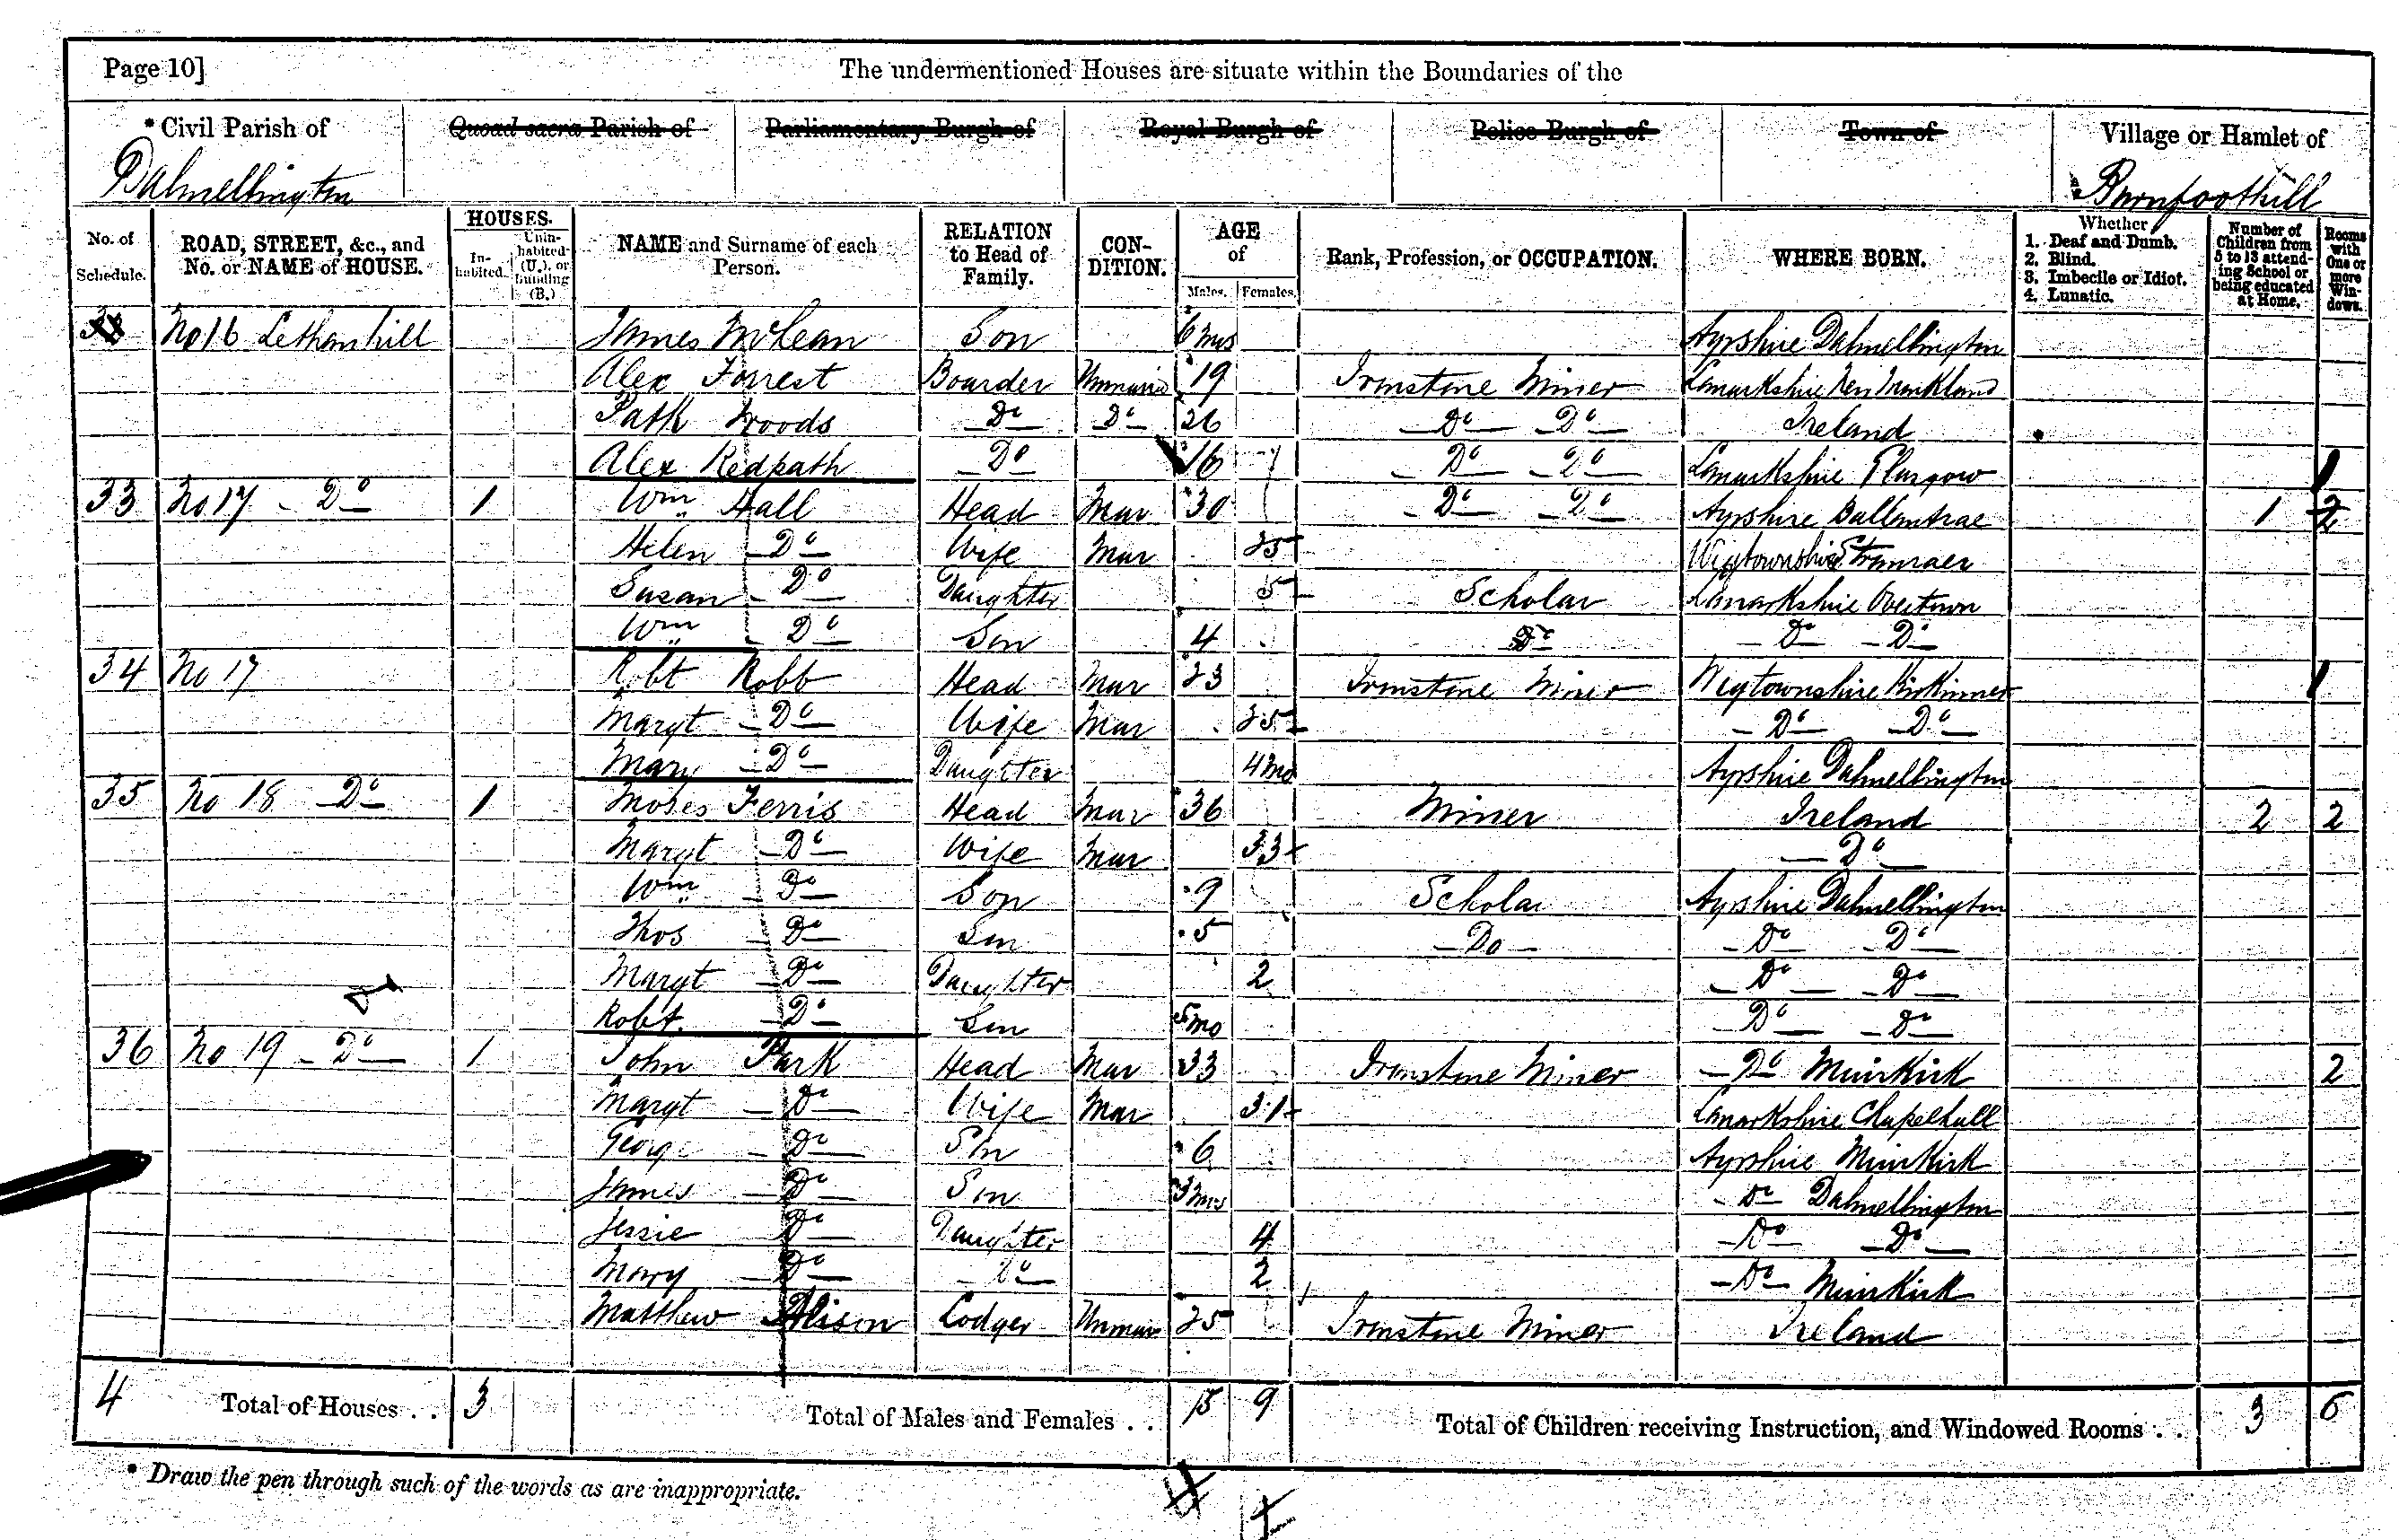 Page 10]
The undermentioned Houses are situate within the Boundaries of the
* Civil Parish of Quoad sacra Parish of Parliamentary Burgh of Royal Burgh of Police Burgh of Town of Village or Hamlet of
Dalmellington Burnfoothill
No. of Schedule. ROAD, STREET, &c., and No. or NAME of HOUSE. HOUSES. Inhabited. Uninhabited (U.), or Building (B.) NAME and Surname of each Person. RELATION to Head of Family. CONDITION. AGE of Males. Females. Rank, Profession, or OCCUPATION. WHERE BORN. Whether 1. Deaf and Dumb. 2. Blind. 3. Imbecile or Idiot. 4. Lunatic. Number of Children from 5 to 13 attending School or being educated at Home. Rooms with One or more Windows.
No 16 Lethanhill James McLean Son 6 mos Ayrshire Dalmellington
Alex Forrest Boarder Unmarried 19 Ironstone Miner Lanarkshire New Monkland
Patk Woods Do Do 26 Do Do Ireland
Alex Redpath Do 16 Do Do Lanarkshire Glasgow 1
33 No 17 Do 1 Wm Hall Head Mar 30 Do Do Ayrshire Ballantrae 1 2
Helen Do Wife Mar 25 Wigtownshire Stranraer
Susan Do Daughter 5 Scholar Lanarkshire Overtown
Wm Do Son 4 Do Do Do
34 No 17 Robt Robb Head Mar 23 Ironstone Miner Wigtownshire Kirkinner 1
Margt Do Wife Mar 25 Do Do
Mary Do Daughter 4 mo Ayrshire Dalmellington
35 No 18 Do 1 Moses Ferris Head Mar 36 Miner Ireland 2 2
Margt Do Wife Mar 33 Do
Wm Do Son 9 Scholar Ayrshire Dalmellington
Thos Do Son 5 Do Do Do
Margt Do Daughter 2 Do Do
Robt. Do Son 5 mo Do Do
36 No 19 Do 1 John Park Head Mar 33 Ironstone Miner Do Muirkirk 2
Margt Do Wife Mar 31 Lanarkshire Chapelhall
George Do Son 6 Ayrshire Muirkirk
James Do Son 3 mos Do Dalmellington
Jessie Do Daughter 4 Do Do
Mary Do Do 2 Do Muirkirk
Matthew Alison Lodger Unmar 25 Ironstone Miner Ireland
4 Total of Houses . . 3 Total of Males and Females . . 15 9 Total of Children receiving Instruction, and Windowed Rooms . . 3 6
* Draw the pen through such of the words as are inappropriate.